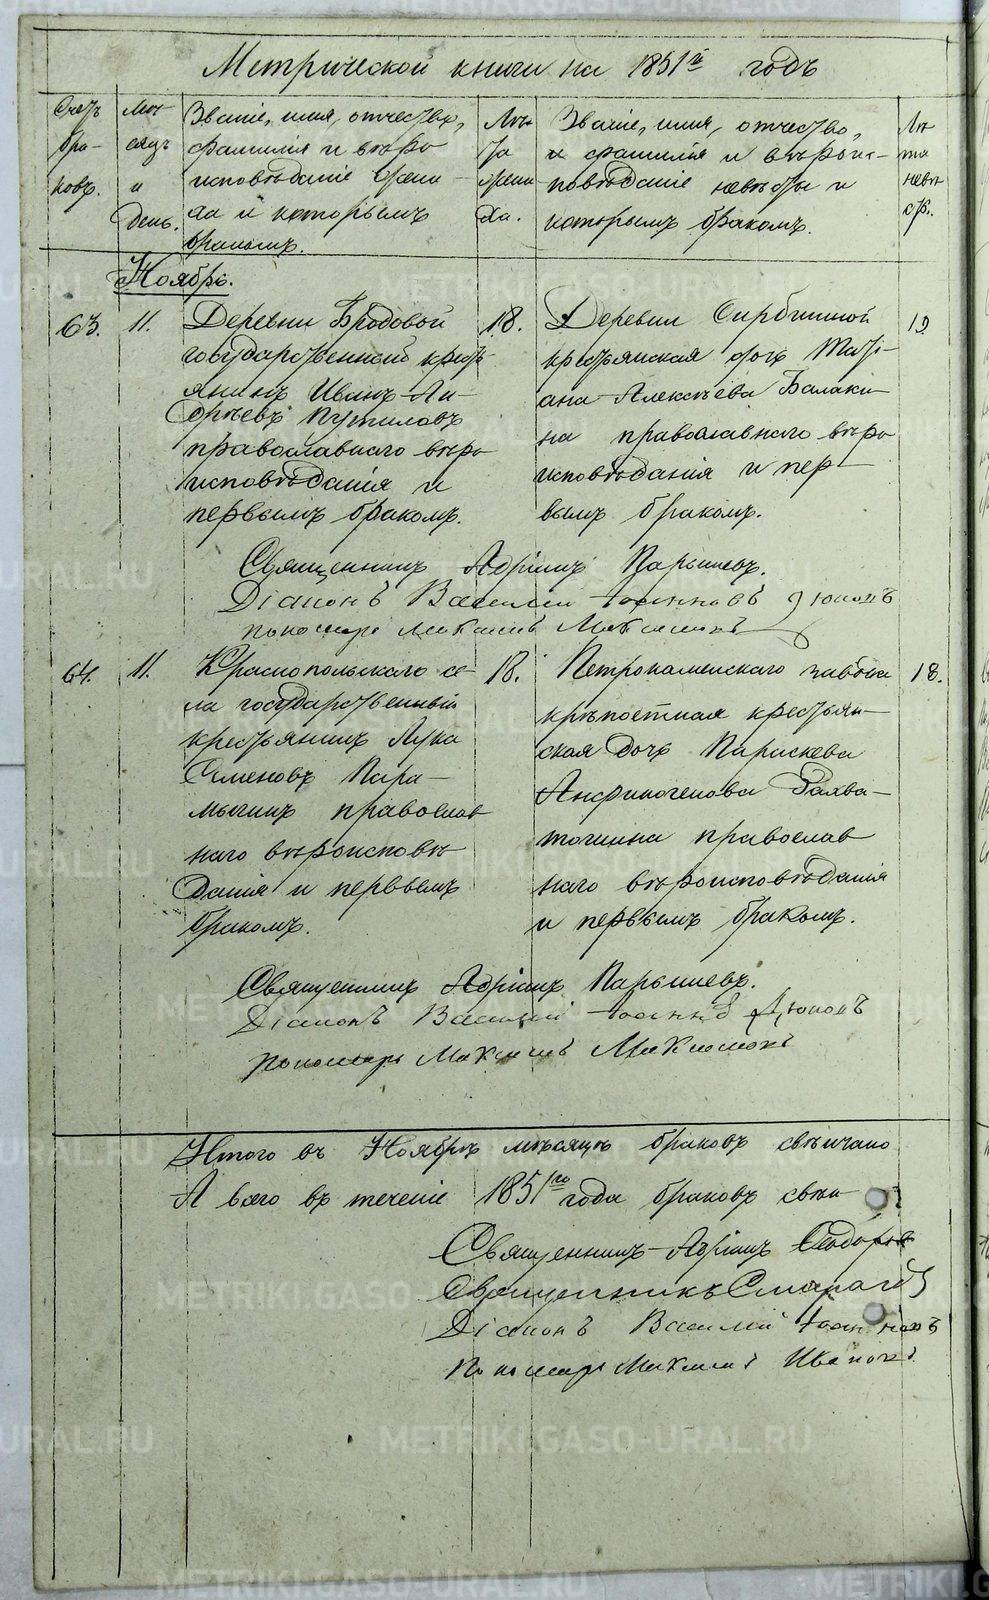 Метрической книги на 1851й годъ
Счетъ
бра-
ковъ.
Мѣ-
сяцъ
и
день.
Званіе, имя, отчество,
фамилія и вѣро
исповѣданіе жени-
ха и которымъ
бракомъ.
Лѣ-
та
жени-
ха.
Званіе, имя, отчество,
и фамилія и вѣроис-
повѣданіе невѣсты и
которымъ бракомъ.
Лѣ-
та
невѣ-
сты.
Ноябрь.
63.
11.
Деревни Бродовой
государственный кресть-
янинъ Иванъ
Путиловъ
православнаго вѣро
исповѣданія и
первымъ бракомъ.
18.
Деревни
крестьянская дочь Тать-
яна Алексѣева Балаки-
на православнаго вѣро
исповѣданія и пер-
вымъ бракомъ.
19
Священникъ Адріанъ Парышевъ.
Діаконъ Василій Іоанновъ Дюковъ
пономарь
64.
11.
Краснопольскаго се-
ла государственный
крестьянинъ Лука
Семеновъ Пара-
мычинъ православ
наго вѣроисповѣ
данія и первымъ
бракомъ.
18.
Петрокаменскаго завода
крѣпостная крестьян-
ская дочь Параскева
Анфиногенова
православ
наго вѣроисповѣданія
и первымъ бракомъ.
18.
Священникъ Адріанъ Парышевъ.
Діаконъ Василій Іоанновъ Дюковъ
пономарь
Итого въ Ноябрѣ мѣсяцѣ браковъ свѣнчано
А всего въ теченіе 1851го года браковъ свѣн
Священникъ Адріанъ
Священникъ
Діаконъ Василій
Пономарь
METRIKI.GASO-URAL.RU